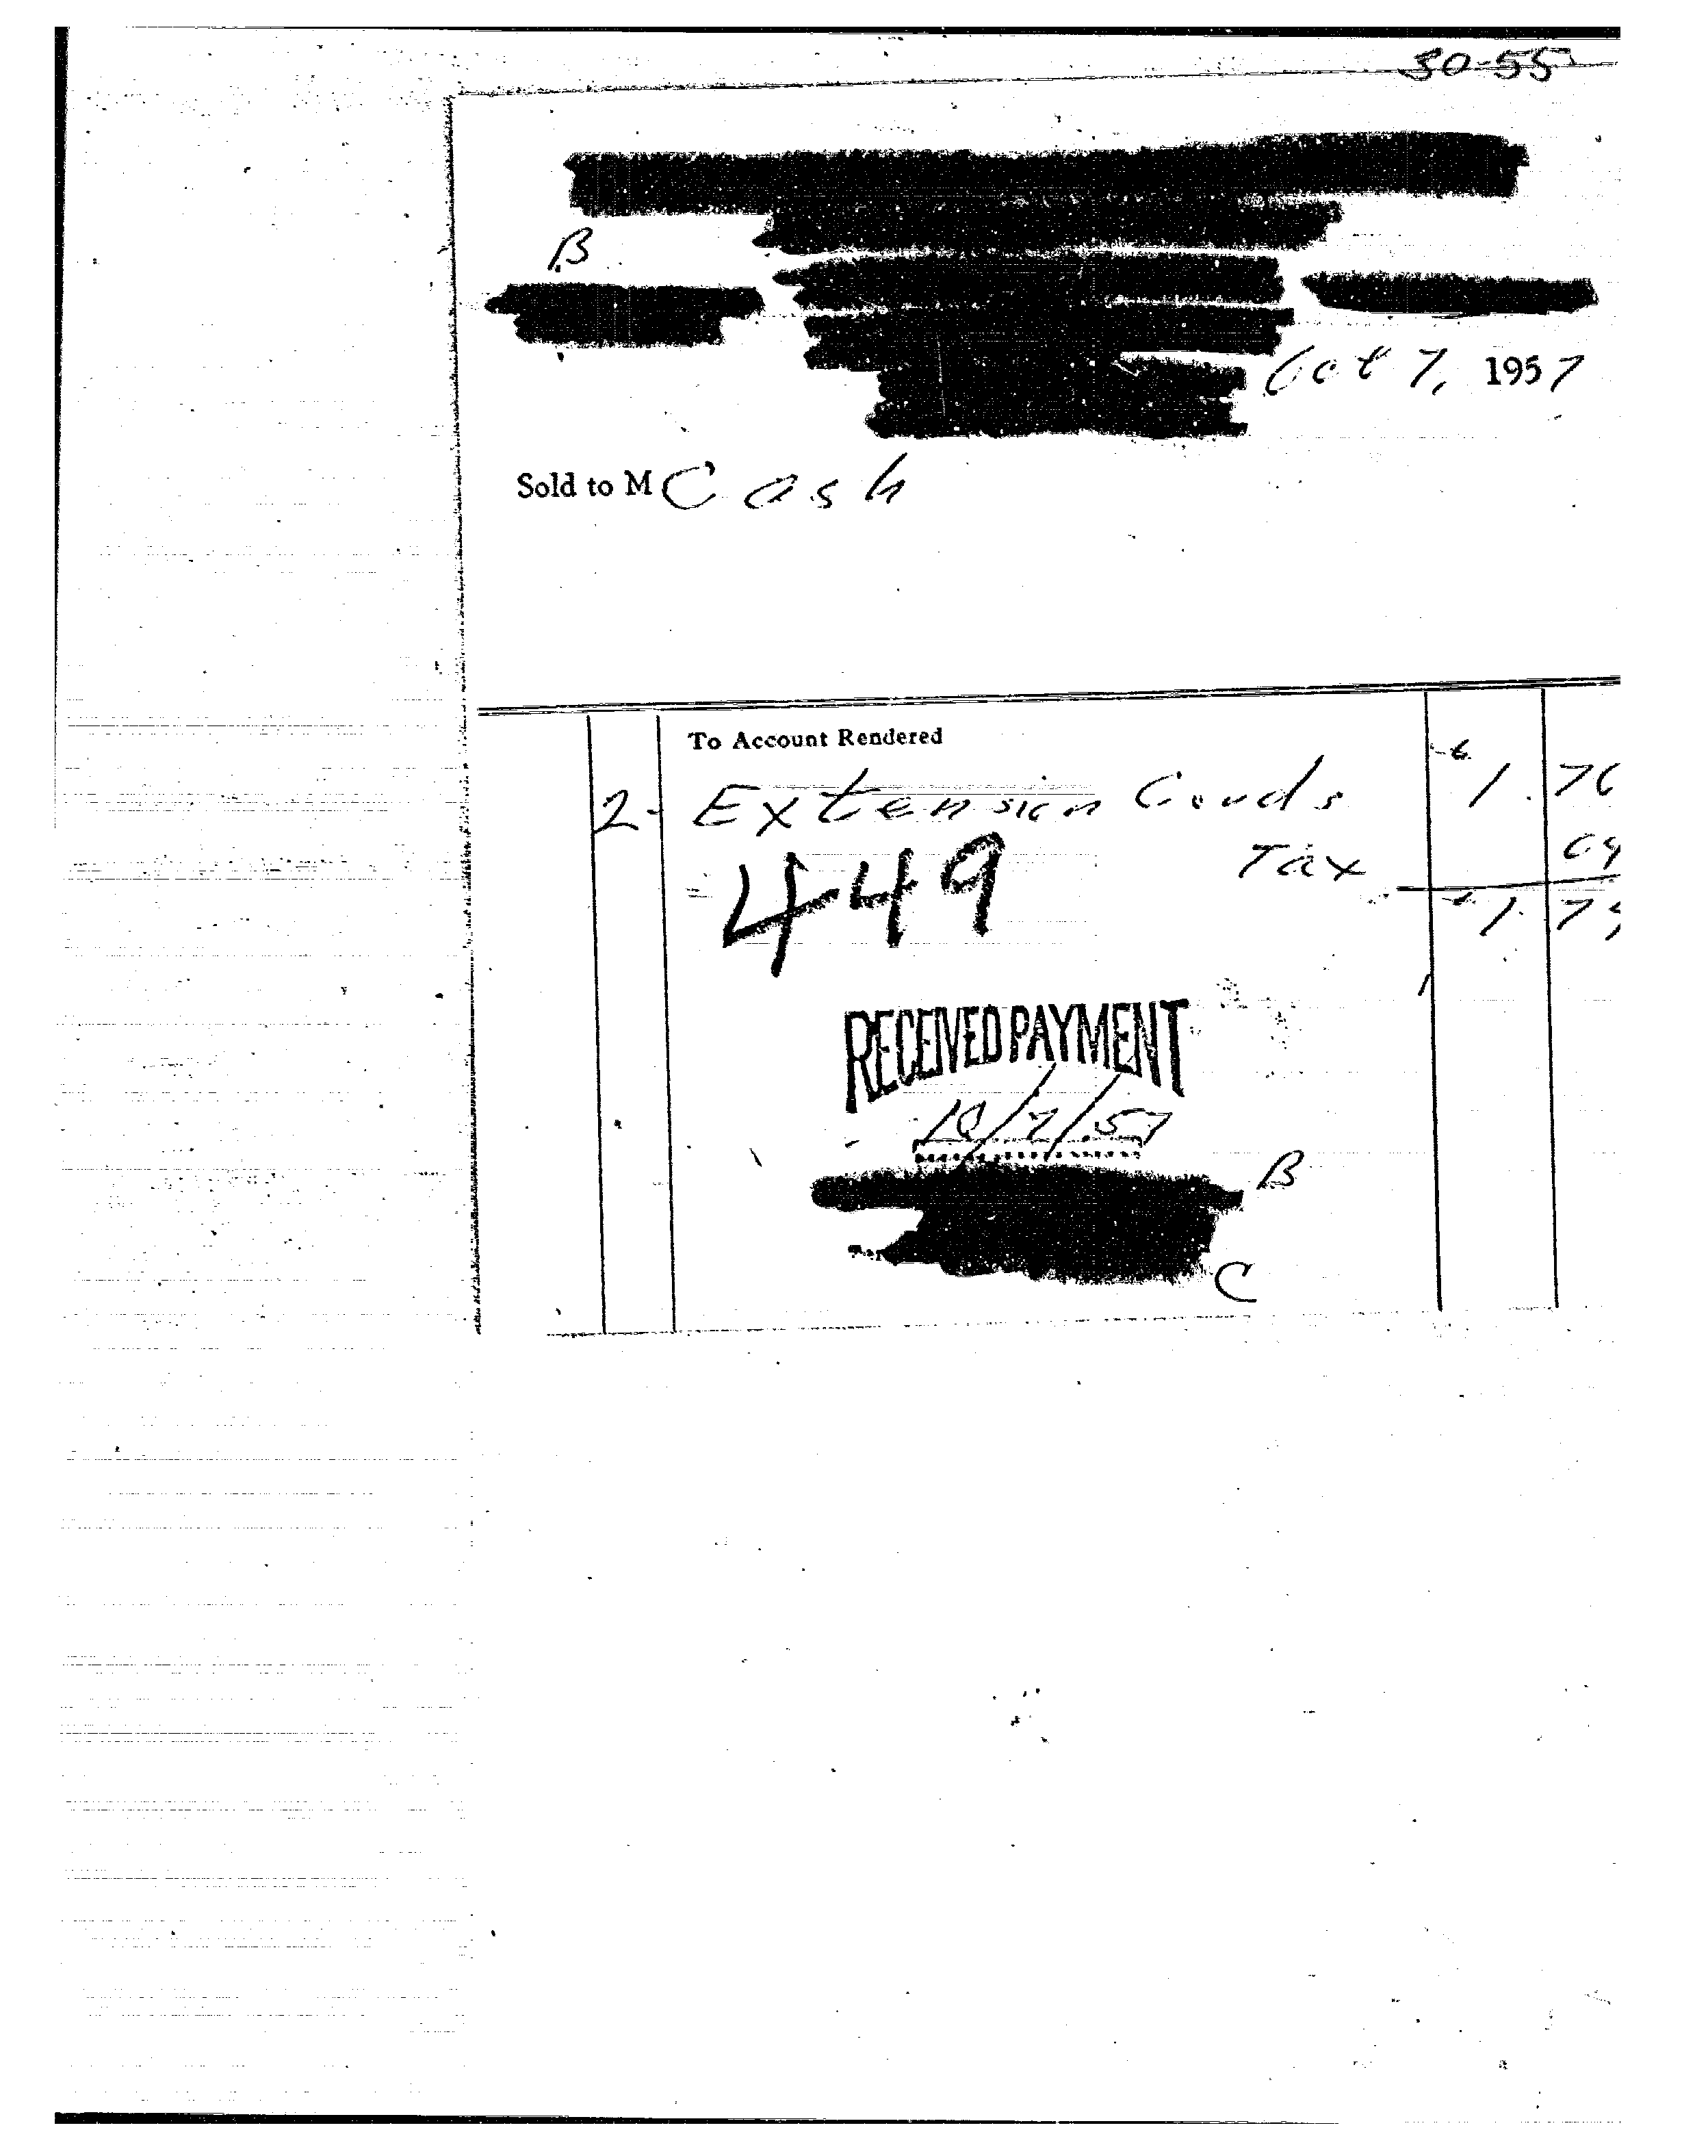 30-55
B
Oct 7, 1957
Sold to M Cash
To Account Rendered
2- Extension Cords 1.70
Tax
449
RECEIVED PAYMENT
10/7/57
B
C